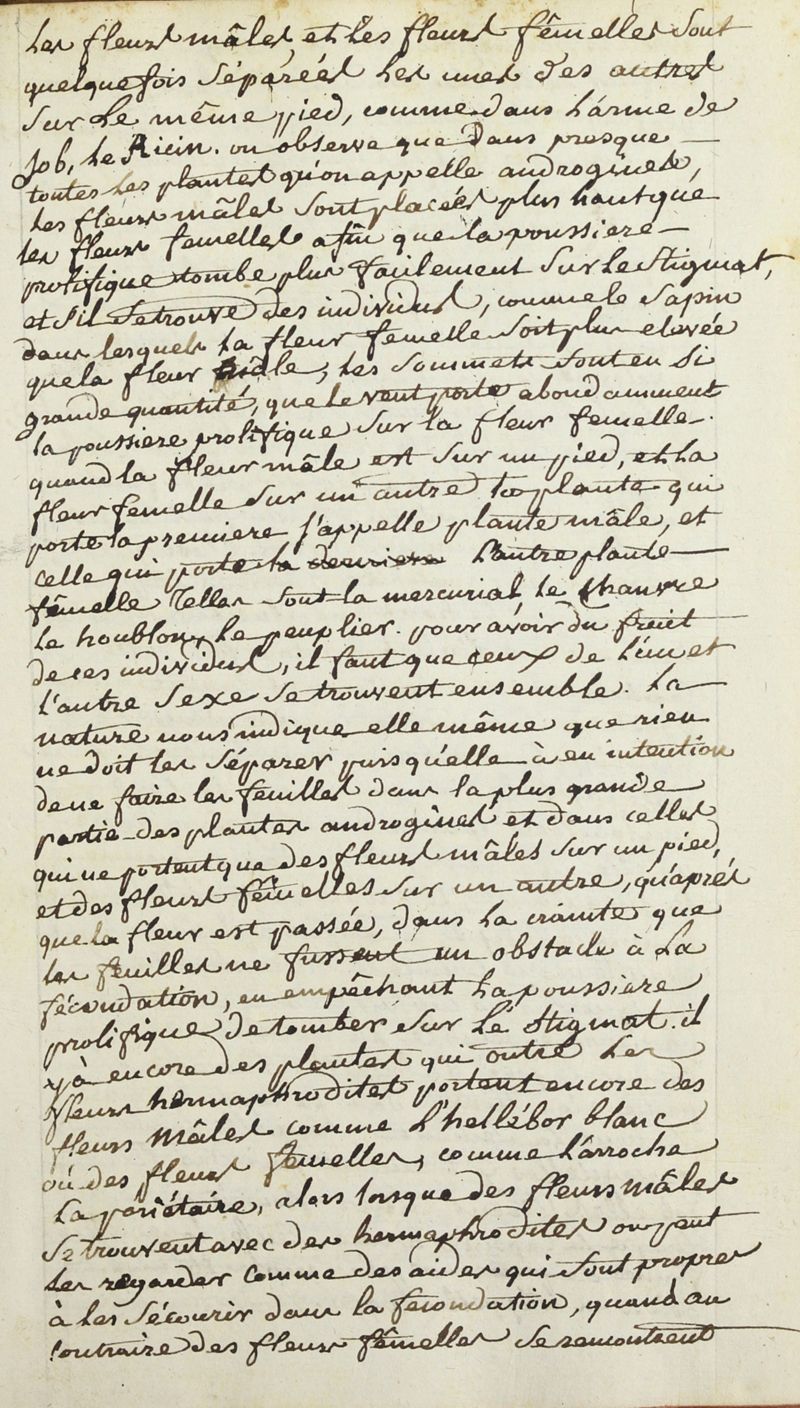 les fleurs mâles, et les fleurs fêmelles sont
quelquefois séparéés les unes des autres
sur le même pied, comme dans lárme de
Job, le Ricin. on observe que dans presque
toutes les plantes qu'on appelle androgines,
les fleurs mâles sont placéés plus haut que
les fleurs femelles afin que la poussiere
prolifique tombe plus facilement sur le stigmat,
et s'il se trouve des individus, comme le sapin
dans lesquels la fleur femelle soit plus elevée
que la fleur mâle, les sommets sont en si
grande quantité, que le vent porte abondamment
la poussiere prolifique sur la fleur femelle.
quand la fleur mâle est sur un pied, et la
fleur femelle sur un autre la plante qui
porte la premiere s'appelle plante mâle, et
celle qui porte la derniere l'autre plante
fêmelle Telles sont la mercurial, le Chanvre
le houblon, le peuplier. pour avoir du fruit
de ces individus, il faut que ceux de l'un et
l'autre sexe se trouvent ensemble. la
nature nous indique elle même que rien
ne doit les séparer puis qu'elle à eu intention
de ne faire les feuilles dans la plus grande
partie des plantes androgines et dans celles
qui ne portent que des fleurs mâles sur un pied,
et des fleurs fêmelles sur un autre, qu'aprés
que la fleur est passée, dans la crainte que
les feuilles ne fussent un obstacle à la
fécondation, en empêchant la poussiere
prolifique de tomber sur le stigmat. il
y à encore des plantes qui outre les
fleurs hermaphrodites portent encore des
fleurs mâles comme l'hellébor blanc
où des fleurs femelles, comme l'árroche
la pariétaire, alors lorsque des fleurs mâles
se trouvent avec des hermaphrodites on peut
les regarder comme des aides qui sont propres
à les sécourir dans la fecondation, quand au
contraire des fleurs fêmelles se rencontrent